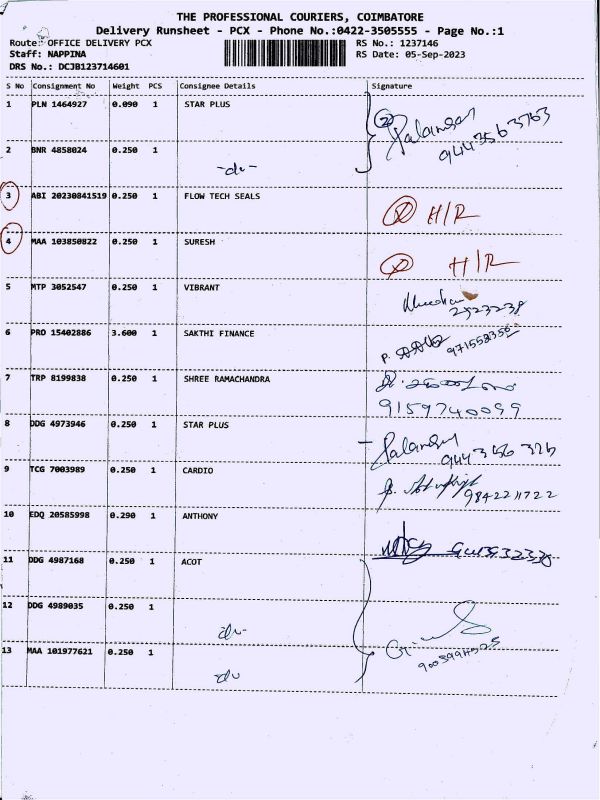 THE PROFESSIONAL COURIERS, COIMBATORE
Delivery Runsheet - PCX - Phone No.:0422-3505555 - Page No.:1
Route: OFFICE DELIVERY PCX RS No.: 1237146
Staff: NAPPINA RS Date: 05-Sep-2023
DRS No.: DCJB123714601
S No Consignment No Weight PCS Consignee Details Signature
1 PLN 1464927 0.090 1 STAR PLUS
2 9443563763
2 BNR 4858024 0.250 1 -do-
3 ABI 20230841519 0.250 1 FLOW TECH SEALS H/R
4 MAA 103850822 0.250 1 SURESH H/R
5 MTP 3052547 0.250 1 VIBRANT
6 PRD 15402886 3.600 1 SAKTHI FINANCE
7 TRP 8199838 0.250 1 SHREE RAMACHANDRA
9159740099
8 DDG 4973946 0.250 1 STAR PLUS
9 TCG 7003989 0.250 1 CARDIO 9842211722
10 EDQ 20585998 0.290 1 ANTHONY
11 DDG 4987168 0.250 1 ACOT
12 DDG 4989035 0.250 1 -do-
13 MAA 101977621 0.250 1 -do-